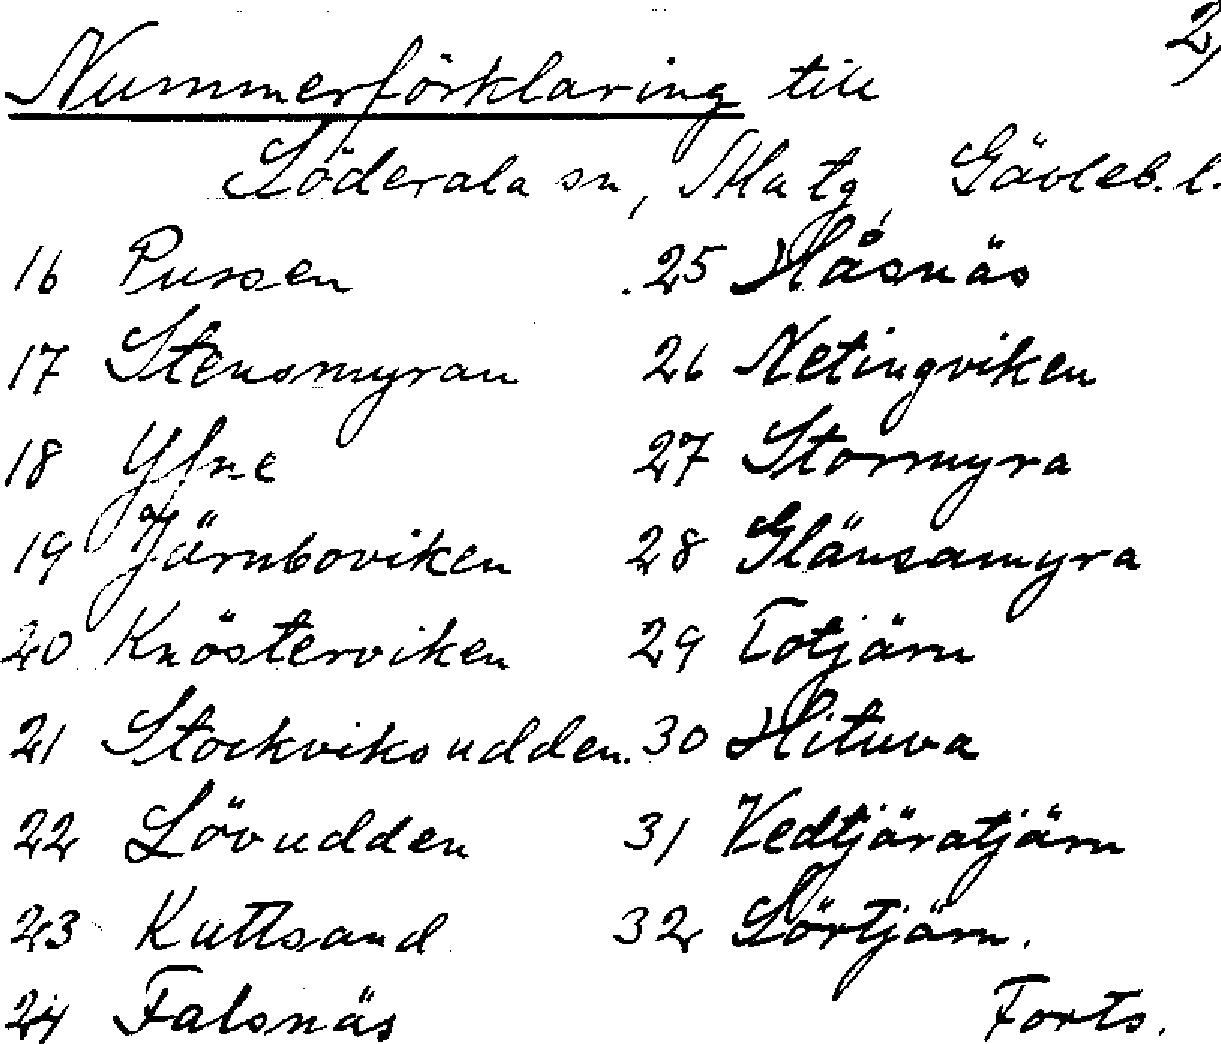 2,
Nummerförklaring till
Söderala sn, Ala tg, Gävleb.l.
16 Pussen
17 Stensmyran
18 Yfne
19 Järnboviken
20 Knösterviken
21 Stockviksudden.
22 Lövudden
23 Kuttsand
24 Falsnäs
25 Håsnäs
26 Netingviken
27 Stormyra
28 Glänsamyra
29 Totjärn
30 Hituva
31 Vedtjäratjärn
32 Sörtjärn.
Forts.